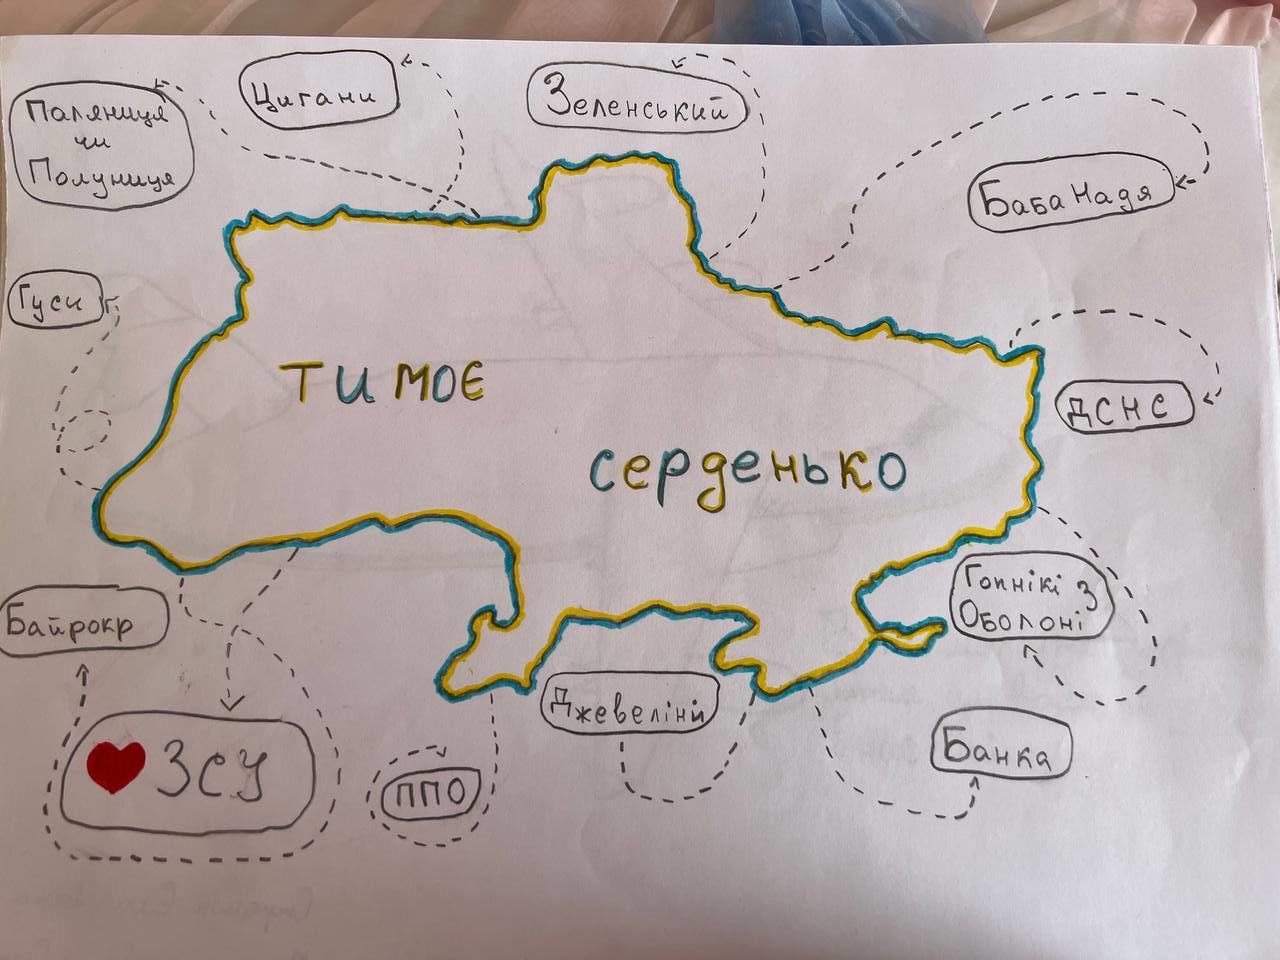 Паляниця
чи
Полуниця
Цигани
Зеленський
Баба Надя
Гуси
ТИ МОЄ
серденько
ДСНС
Гопнікі з
Оболоні
Байрокр
ЗСУ
ППО
Джевеліни
Банка